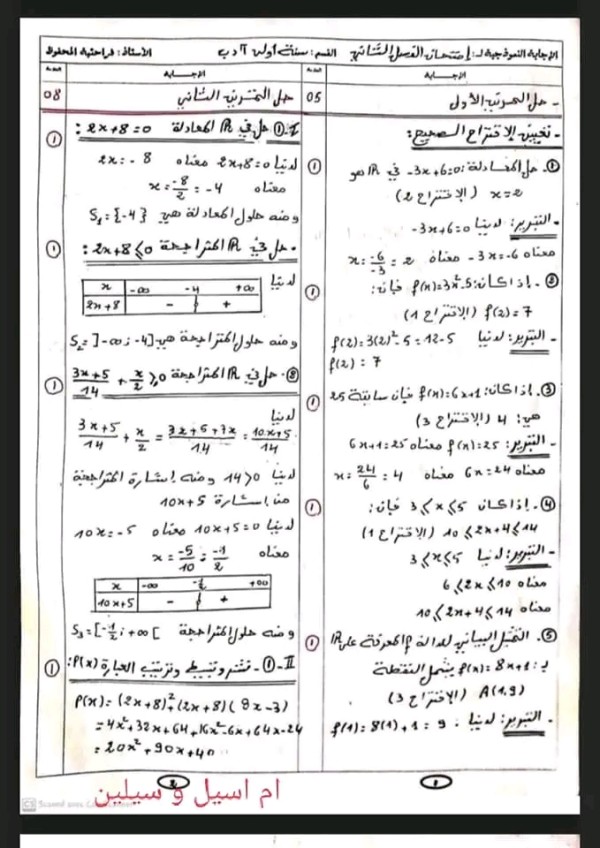 الإجابة النموذجية لـ: إمتحان الفصل الثاني القسم: سنة أولى آداب الأستاذ: فراحتية المحفوظ
الإجابة العلامة
- حل التمرين الأول 05
- تعيين الإقتراح الصحيح:
① حل المعادلة: -3x+6=0 في ℝ هو ①
x=2 (الإقتراح 2)
- التبرير: لدينا -3x+6=0
معناه -3x=-6 معناه x = -6/-3 = 2
② إذا كان: f(x)=3x²-5 فإن: ①
f(2)=7 (الإقتراح 1)
- التبرير: لدينا f(2)=3(2)²-5=12-5
f(2)=7
③ إذا كان: f(x)=6x+1 فإن سابقة 25 ①
هي: 4 (الإقتراح 3)
- التبرير: f(x)=25 معناه 6x+1=25
معناه 6x=24 معناه x = 24/6 = 4
④ إذا كان 3≤x≤5 فإن: ①
10≤2x+4≤14 (الإقتراح 1)
- التبرير: لدينا 3≤x≤5
معناه 6≤2x≤10
معناه 10≤2x+4≤14
⑤ التمثيل البياني للدالة f المعرفة على ℝ ①
بـ: f(x)=8x+1 يشمل النقطة
A(1,9) (الإقتراح 3)
- التبرير: لدينا: f(1)=8(1)+1=9
1
الإجابة العلامة
حل التمرين الثاني 08
I-① حل في ℝ المعادلة 2x+8=0: ①
لدينا 2x+8=0 معناه 2x=-8
معناه x = -8/2 = -4
ومنه حلول المعادلة هي S₁={-4}
• حل في ℝ المتراجحة 2x+8≤0: ①
لدينا
x -∞ -4 +∞
2x+8 - 0 +
ومنه حلول المتراجحة هي S₂=]-∞;-4]
- حل في ℝ المتراجحة 3x+5/14 + x/2 ≥0 ①
لدينا
3x+5/14 + x/2 = 3x+5+7x/14 = 10x+5/14
لدينا 14>0 ومنه إشارة المتراجحة
من إشارة 10x+5
لدينا 10x+5=0 معناه 10x=-5
معناه x = -5/10 = -1/2
x -∞ -1/2 +∞
10x+5 - 0 +
ومنه حلول المتراجحة S₃=[-1/2;+∞[
II-①- نشر وتبسيط وترتيب العبارة P(x): ①
P(x)=(2x+8)²+(2x+8)(8x-3)
=4x²+32x+64+16x²-6x+64x-24
=20x²+90x+40
2
ام اسيل و سيلين
CS Scanned with CamScanner